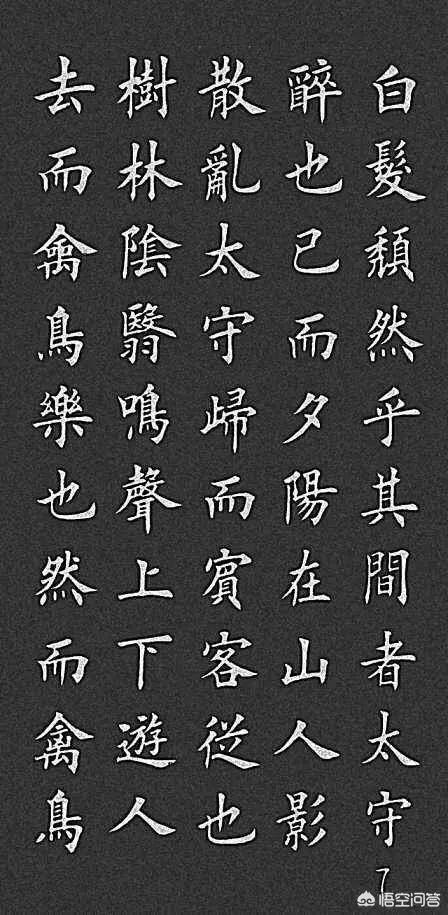 白髮頹然乎其間者太守
醉也已而夕陽在山人影
散亂太守歸而賓客從也
樹林陰翳鳴聲上下遊人
去而禽鳥樂也然而禽鳥
悟空问答